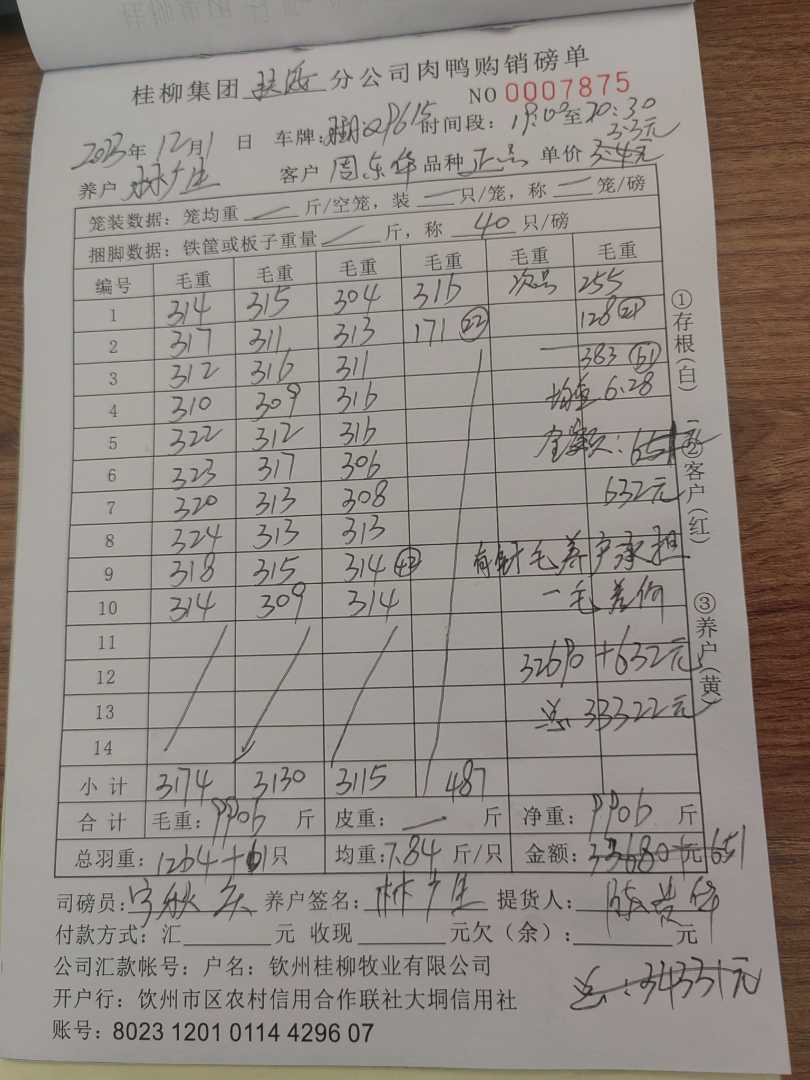 桂柳集团 分公司肉鸭购销磅单
NO 0007875
2023年12月1日 车牌: P615 时间段: 19:00至20:30
3.3元
养户 林广生 客户 周东华 品种 正品 单价 3.4元
笼装数据: 笼均重 一 斤/空笼, 装 一 只/笼, 称 一 笼/磅
捆脚数据: 铁筐或板子重量 一 斤, 称 40 只/磅
编号 毛重 毛重 毛重 毛重 毛重 毛重
1 314 315 304 316 次品 255
2 317 311 313 171 (22) 128 (21)
3 312 316 311 383 (61)
4 310 309 316 均重 6.28
5 322 312 316 金额: 651元
6 323 317 306 632元
7 320 313 308
8 324 313 313
9 318 315 314 (42) 有针毛养户承担
10 314 309 314 一毛差价
11
12 32690+632元
13 总 33322元
14
小计 3174 3130 3115 487
合计 毛重: 9906 斤 皮重: 一 斤 净重: 9906 斤
总羽重: 1264+61只 均重: 7.84 斤/只 金额: 33680元 651
司磅员: 养户签名: 林广生 提货人:
付款方式: 汇 元 收现 元欠(余): 元
公司汇款帐号: 户名: 钦州桂柳牧业有限公司
总: 34331元
开户行: 钦州市区农村信用合作联社大垌信用社
账号: 8023 1201 0114 4296 07
①存根(白)
②客户(红)
③养户(黄)